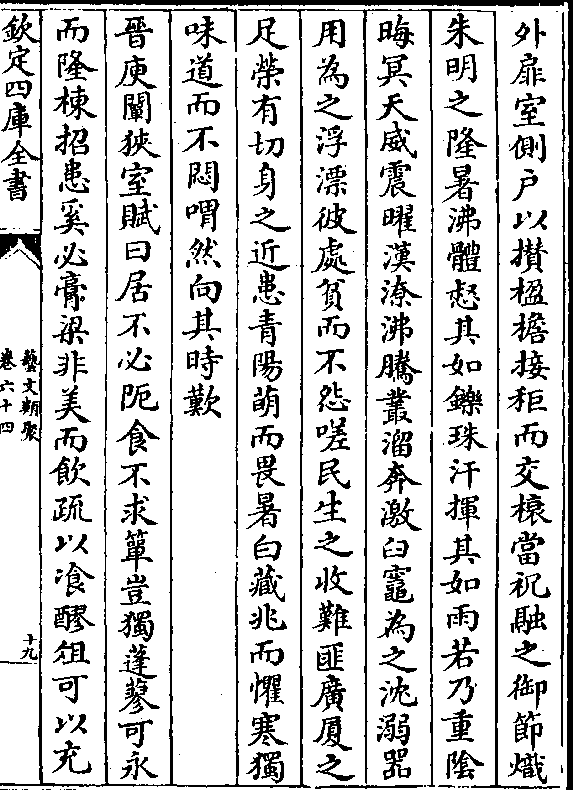 外扉室側戶以攅楹擔接秬而交榱當祝融之御節熾
朱明之隆暑沸體惄其如鑠珠汗揮其如雨若乃重陰
晦冥天威震曜漢潦沸騰叢溜奔激臼竈為之沈溺器
用為之浮漂彼處貧而不怨嗟民生之收難匪廣厦之
足榮有切身之近患青陽萌而畏暑白藏兆而懼寒獨
味道而不悶喟然向其時歎
晉庾闡狹室賦曰居不必阨食不求簞豈獨蓬蓼可永
而隆棟招患奚必膏梁非美而飲疏以飡醪俎可以充
欽定四庫全書
藝文類聚
卷六十四
十九